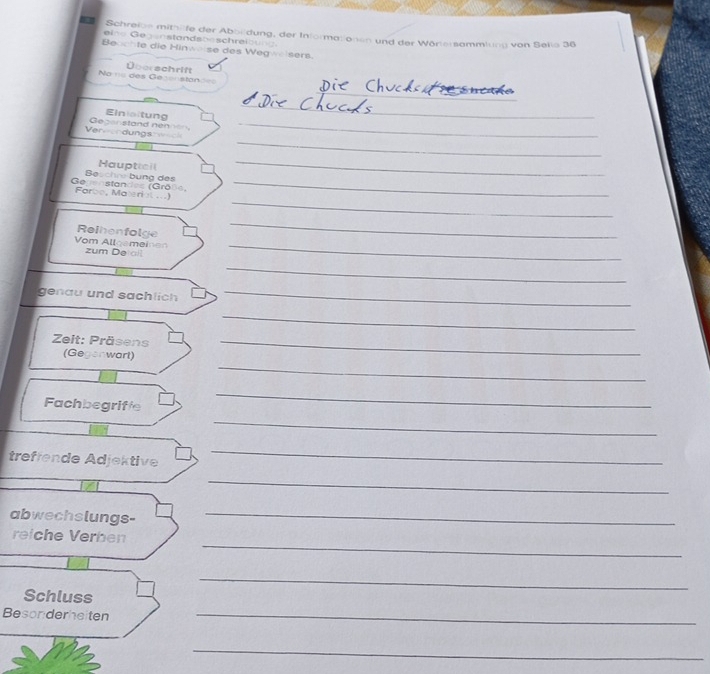 Schreibe mithilfe der Abbildung, der Informationen und der Wörtersammlung von Seite 36
eine Gegenstandsbeschreibung.
Beachte die Hinweise des Wegweisers.
Überschrift
Name des Gegenstandes
Die Chucks
Die Chucks
Einleitung
Gegenstand nennen,
Verwendungszweck
Hauptteil
Beschreibung des
Gegenstandes (Größe,
Farbe, Material ...)
Reihenfolge
Vom Allgemeinen
zum Detail
genau und sachlich
Zeit: Präsens
(Gegenwart)
Fachbegriffe
treffende Adjektive
abwechslungs-
reiche Verben
Schluss
Besonderheiten